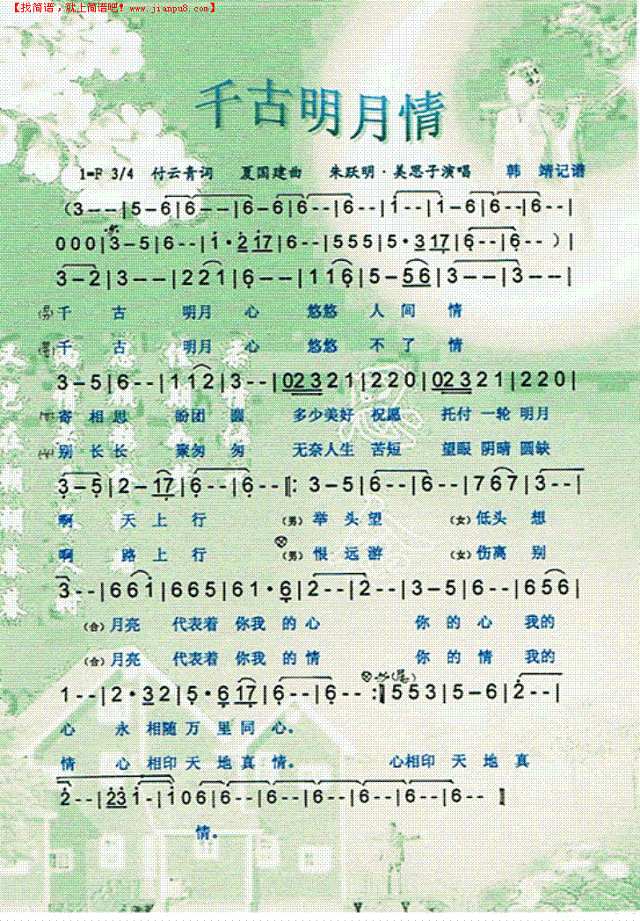 【找简谱，就上简谱吧！www.jianpu8.com】
千古明月情
1=F 3/4 付云青词 夏国建曲 朱跃明·美思子演唱 韩 靖记谱
(3--|5-6|6--|6-6|6--|6--|i--|i-6|6--|6--|
000|3-5|6--|i·2 17|6--|555|5·3 17|6--|6--)|
3-2|3--|221|6--|6--|116|5-56|3--|3--|
(男)千 古 明月 心 悠悠 人 间 情
千 古 明月 心 悠悠 不 了 情
3-5|6--|112|3--|02 3 21|220|02 3 21|220|
寄 相 思 盼团 圆 多少美好 祝愿 托付 一轮 明月
别 长 长 聚匆 匆 无奈人生 苦短 望眼 阴晴 圆缺
3-5|2-17|6--|6--‖:3-5|6--|6--|767|3--|
啊 天 上 行 (男)举 头 望 (女)低头 想
啊 路 上 行 (男)恨 远 游 (女)伤离 别
3--|66i|665|61·6|2--|2--|3-5|6--|656|
(合)月亮 代表着 你我 的 心 你 的 心 我的
(合)月亮 代表着 你我 的 情 你 的 情 我的
1--|2·32|5·6 17|6--|6--:‖553|5-6|2--|
心 永 相随 万 里 同 心。
情 心 相印 天 地 真 情。 心相印 天 地 真
2--|23 i-|i06|6--|6--|6--|6--|6--‖
情。